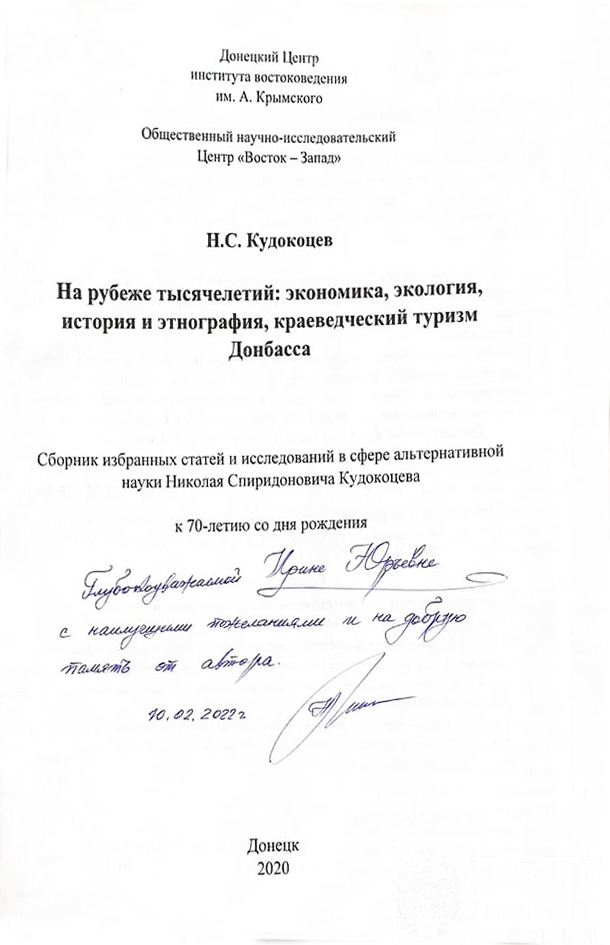 Донецкий Центр
института востоковедения
им. А. Крымского
Общественный научно-исследовательский
Центр «Восток – Запад»
Н.С. Кудокоцев
На рубеже тысячелетий: экономика, экология,
история и этнография, краеведческий туризм
Донбасса
Сборник избранных статей и исследований в сфере альтернативной
науки Николая Спиридоновича Кудокоцева
к 70-летию со дня рождения
Глубокоуважаемой Ирине Юрьевне
с наилучшими пожеланиями и на добрую
память от автора.
10.02.2022г
Донецк
2020